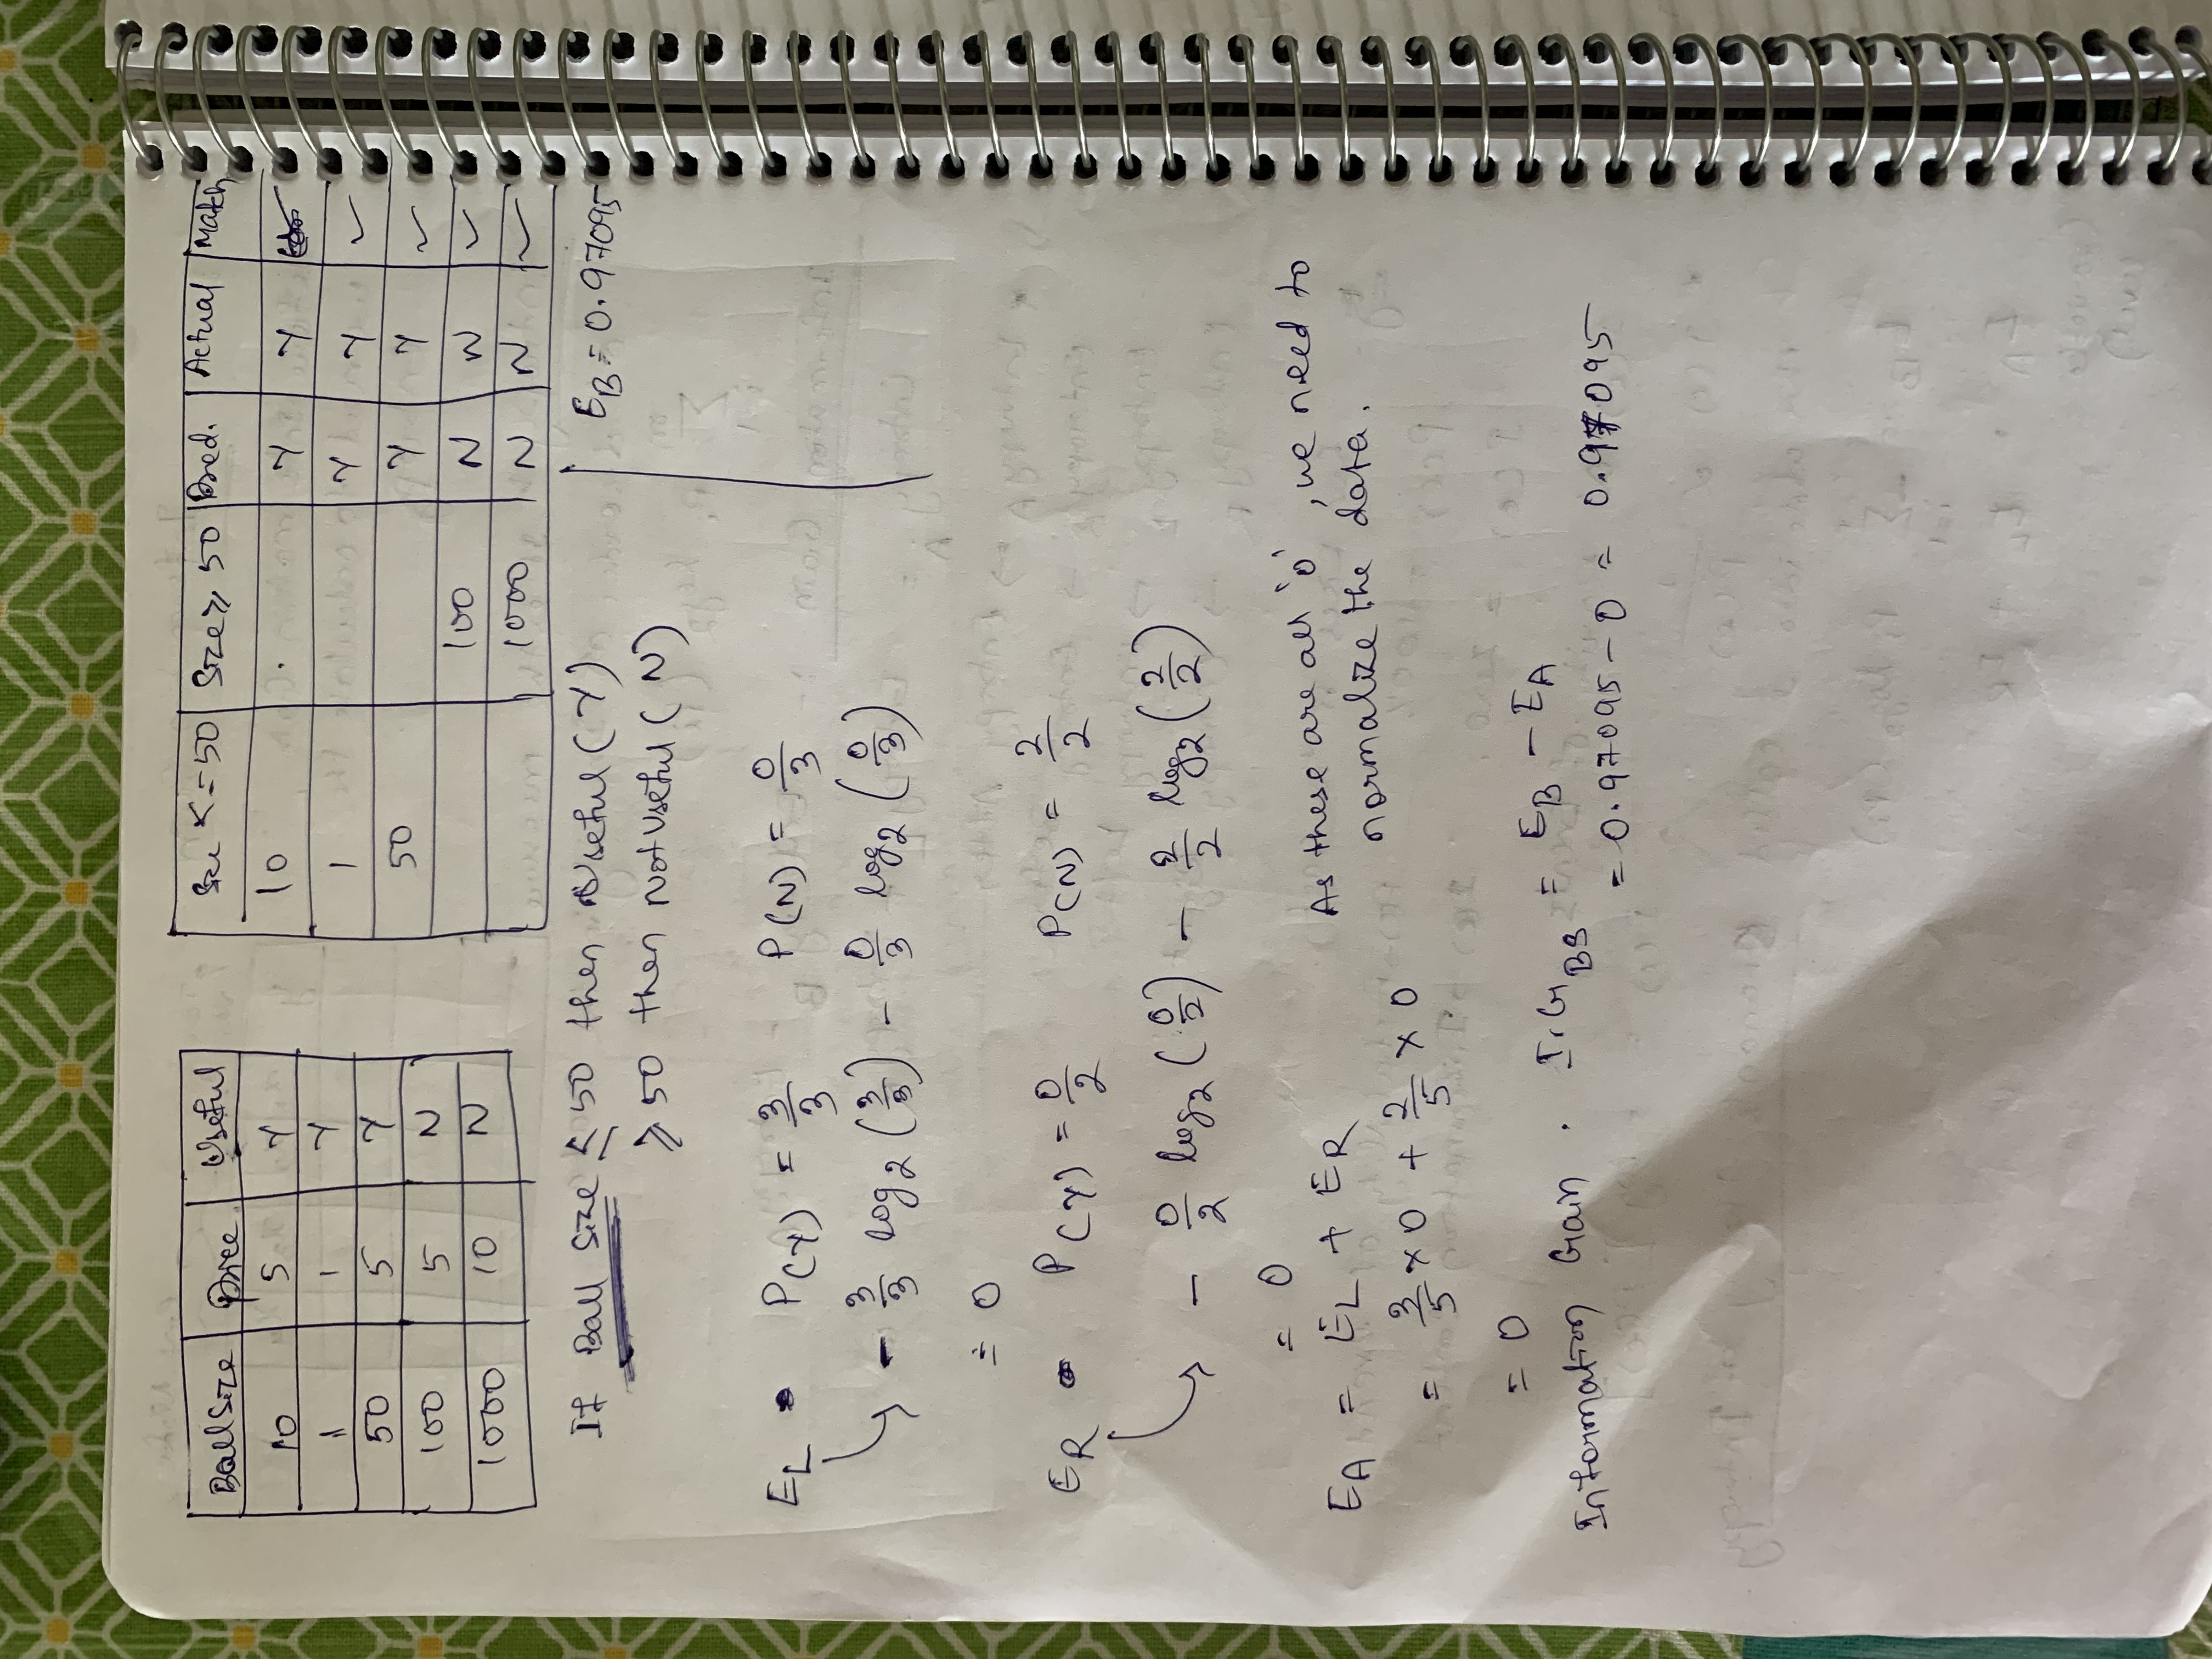 Ball Size Price Useful
10 5 Y
1 1 Y
50 5 Y
100 5 N
1000 10 N
Size <=50 Size ≥ 50 Pred. Actual Match
10 Y Y
1 Y Y ✓
50 Y Y ✓
100 N N ✓
1000 N N ✓
If Ball Size ≤ 50 then Useful (Y)
≥ 50 then Not Useful (N)
EB = 0.97095
EL P(Y) = 3/3 P(N) = 0/3
→ - 3/3 log2 (3/3) - 0/3 log2 (0/3)
= 0
ER P(Y) = 0/2 P(N) = 2/2
→ - 0/2 log2 (0/2) - 2/2 log2 (2/2)
= 0
EA = EL + ER
As these are all '0', we need to
normalize the data.
= 3/5 × 0 + 2/5 × 0
= 0
Information Gain. I.G BS = EB - EA
= 0.97095 - 0 = 0.97095